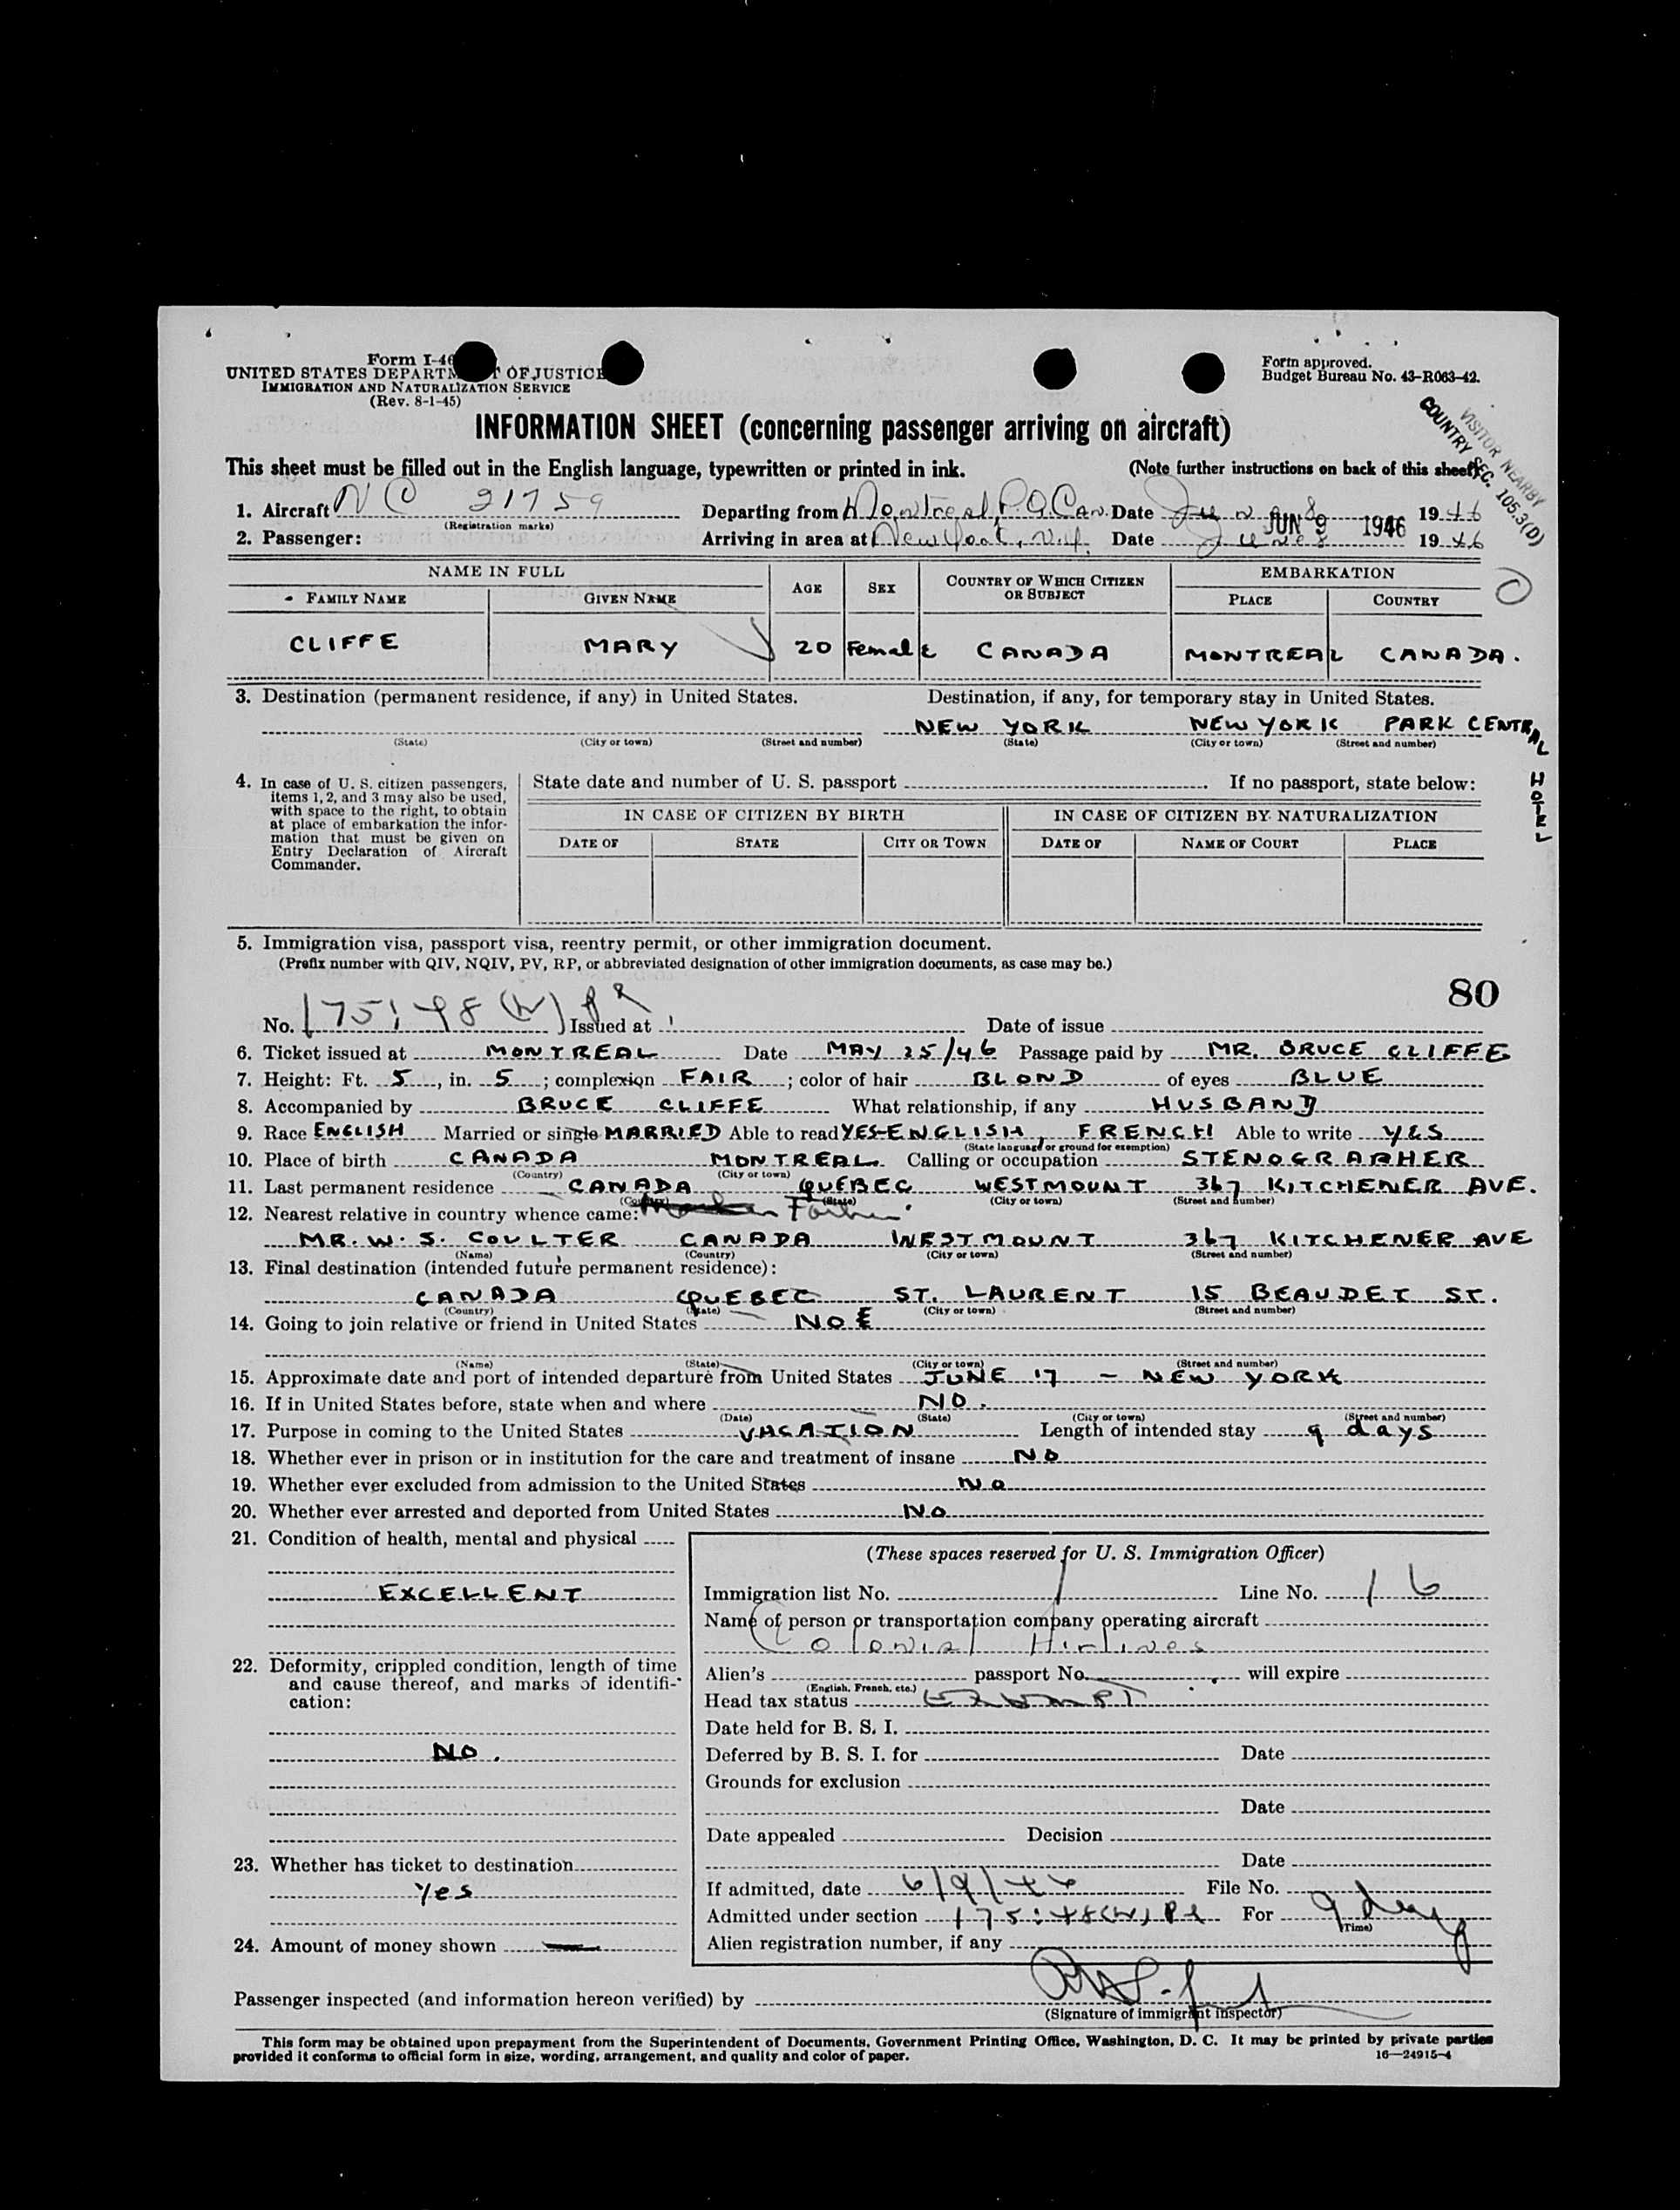 Form I-46
UNITED STATES DEPARTMENT OF JUSTICE
IMMIGRATION AND NATURALIZATION SERVICE
(Rev. 8-1-45)
Form approved.
Budget Bureau No. 43-R063-42.
VISITOR NEARBY
COUNTRY SEC. 105.3(D)
INFORMATION SHEET (concerning passenger arriving on aircraft)
This sheet must be filled out in the English language, typewritten or printed in ink. (Note further instructions on back of this sheet)
1. Aircraft NC 21759 Departing from Montreal, P.Q. Can. Date June 8 1946
(Registration marks) JUN 9 1946
2. Passenger: Arriving in area at Date June 8 1946
NAME IN FULL AGE SEX COUNTRY OF WHICH CITIZEN OR SUBJECT EMBARKATION
FAMILY NAME GIVEN NAME PLACE COUNTRY
CLIFFE MARY 20 Female CANADA MONTREAL CANADA.
3. Destination (permanent residence, if any) in United States. Destination, if any, for temporary stay in United States.
NEW YORK NEW YORK PARK CENTRAL HOTEL
(State) (City or town) (Street and number) (State) (City or town) (Street and number)
4. In case of U. S. citizen passengers, items 1, 2, and 3 may also be used, with space to the right, to obtain at place of embarkation the information that must be given on Entry Declaration of Aircraft Commander.
State date and number of U. S. passport . If no passport, state below:
IN CASE OF CITIZEN BY BIRTH IN CASE OF CITIZEN BY NATURALIZATION
DATE OF STATE CITY OR TOWN DATE OF NAME OF COURT PLACE
5. Immigration visa, passport visa, reentry permit, or other immigration document.
(Prefix number with QIV, NQIV, PV, RP, or abbreviated designation of other immigration documents, as case may be.)
80
No. 175:48(W) Issued at Date of issue
6. Ticket issued at MONTREAL Date MAY 25/46 Passage paid by MR. BRUCE CLIFFE
7. Height: Ft. 5, in. 5; complexion FAIR; color of hair BLOND of eyes BLUE
8. Accompanied by BRUCE CLIFFE What relationship, if any HUSBAND
9. Race ENGLISH Married or single MARRIED Able to read YES-ENGLISH, FRENCH Able to write YES
(State language or ground for exemption)
10. Place of birth CANADA MONTREAL. Calling or occupation STENOGRAPHER
(Country) (City or town)
11. Last permanent residence CANADA QUEBEC WESTMOUNT 367 KITCHENER AVE.
(Country) (State) (City or town) (Street and number)
12. Nearest relative in country whence came: Father
MR. W. S. COULTER CANADA WESTMOUNT 367 KITCHENER AVE
(Name) (Country) (City or town) (Street and number)
13. Final destination (intended future permanent residence):
CANADA QUEBEC ST. LAURENT 15 BEAUDET ST.
(Country) (State) (City or town) (Street and number)
14. Going to join relative or friend in United States NOE
(Name) (State) (City or town) (Street and number)
15. Approximate date and port of intended departure from United States JUNE 17 - NEW YORK
16. If in United States before, state when and where NO.
(Date) (State) (City or town) (Street and number)
17. Purpose in coming to the United States VACATION Length of intended stay 9 days
18. Whether ever in prison or in institution for the care and treatment of insane NO
19. Whether ever excluded from admission to the United States NO
20. Whether ever arrested and deported from United States NO
21. Condition of health, mental and physical
EXCELLENT
22. Deformity, crippled condition, length of time and cause thereof, and marks of identification:
NO.
23. Whether has ticket to destination
Yes
24. Amount of money shown
(These spaces reserved for U. S. Immigration Officer)
Immigration list No. Line No. 16
Name of person or transportation company operating aircraft
Colonial Airlines
Alien's passport No. will expire
(English, French, etc.)
Head tax status Exempt
Date held for B. S. I.
Deferred by B. S. I. for Date
Grounds for exclusion
Date
Date appealed Decision
Date
If admitted, date 6/9/46 File No.
Admitted under section 175:48(W) For 9 days
(Time)
Alien registration number, if any
Passenger inspected (and information hereon verified) by
(Signature of immigrant inspector)
This form may be obtained upon prepayment from the Superintendent of Documents, Government Printing Office, Washington, D. C. It may be printed by private parties
provided it conforms to official form in size, wording, arrangement, and quality and color of paper. 16—24915-4